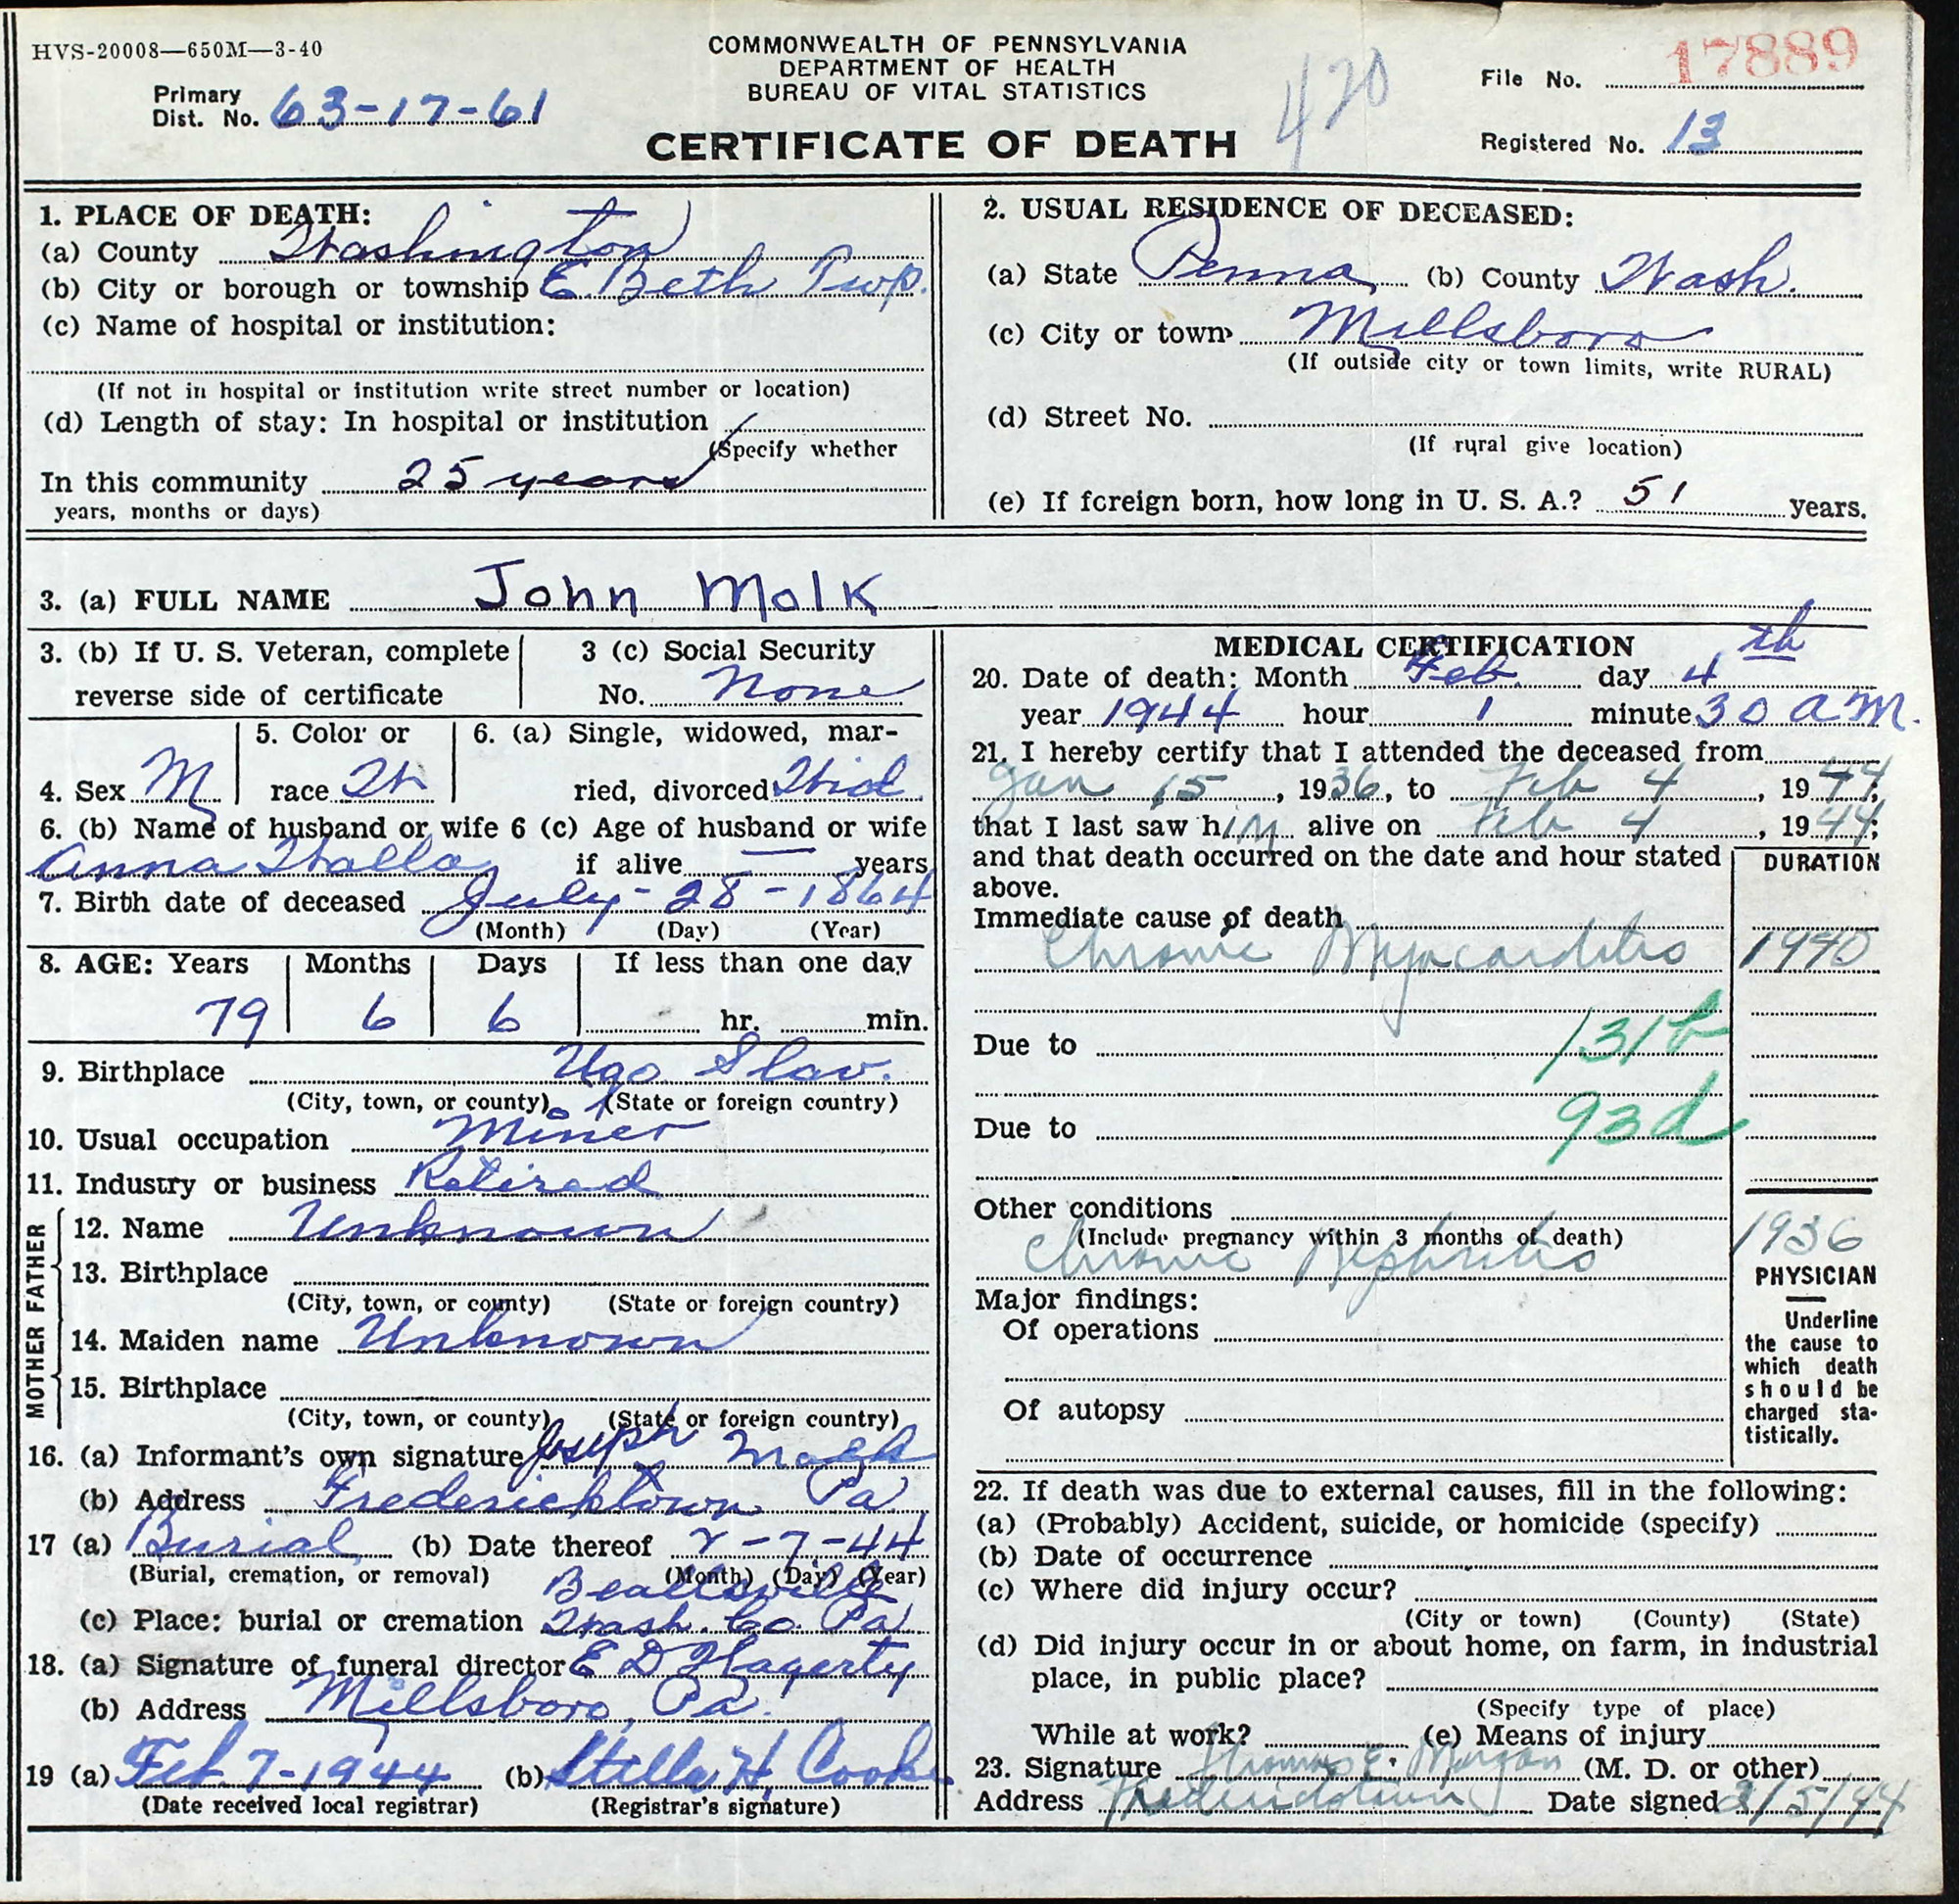 HVS-20008—650M—3-40
COMMONWEALTH OF PENNSYLVANIA
DEPARTMENT OF HEALTH
BUREAU OF VITAL STATISTICS
CERTIFICATE OF DEATH
420
Primary
Dist. No. 63-17-61
File No. 17889
Registered No. 13
1. PLACE OF DEATH:
(a) County Washington
(b) City or borough or township E. Beth Twp.
(c) Name of hospital or institution:
(If not in hospital or institution write street number or location)
(d) Length of stay: In hospital or institution
(Specify whether
In this community 25 years
years, months or days)
2. USUAL RESIDENCE OF DECEASED:
(a) State Penna (b) County Wash.
(c) City or town Millsboro
(If outside city or town limits, write RURAL)
(d) Street No.
(If rural give location)
(e) If foreign born, how long in U. S. A.? 51 years.
3. (a) FULL NAME John Molk
3. (b) If U. S. Veteran, complete
reverse side of certificate
3 (c) Social Security
No. None
4. Sex M
5. Color or
race Wh
6. (a) Single, widowed, mar-
ried, divorced Wid.
6. (b) Name of husband or wife
Anna Walla
6 (c) Age of husband or wife
if alive — years
7. Birth date of deceased July - 28 - 1864
(Month) (Day) (Year)
8. AGE: Years Months Days If less than one day
79 6 6 hr. min.
9. Birthplace Ugo Slav.
(City, town, or county) (State or foreign country)
10. Usual occupation Miner
11. Industry or business Retired
FATHER
12. Name Unknown
13. Birthplace
(City, town, or county) (State or foreign country)
MOTHER
14. Maiden name Unknown
15. Birthplace
(City, town, or county) (State or foreign country)
16. (a) Informant's own signature Joseph Molk
(b) Address Fredericktown Pa
17 (a) Burial (b) Date thereof 2-7-44
(Burial, cremation, or removal) (Month) (Day) (Year)
Beallsville
(c) Place: burial or cremation Wash. Co. Pa
18. (a) Signature of funeral director E D Hagerty
(b) Address Millsboro, Pa.
19 (a) Feb. 7-1944 (b) Stella H. Cook
(Date received local registrar) (Registrar's signature)
MEDICAL CERTIFICATION
20. Date of death: Month Feb. day 4th
year 1944 hour 1 minute 30 a M.
21. I hereby certify that I attended the deceased from
Jan 15, 1936, to Feb 4, 1944;
that I last saw him alive on Feb 4, 1944;
and that death occurred on the date and hour stated
above.
DURATION
Immediate cause of death
Chronic Myocarditis 1940
Due to 131b
Due to 93d
Other conditions
(Include pregnancy within 3 months of death)
Chronic Nephritis 1936
Major findings:
Of operations
Of autopsy
PHYSICIAN
Underline
the cause to
which death
should be
charged sta-
tistically.
22. If death was due to external causes, fill in the following:
(a) (Probably) Accident, suicide, or homicide (specify)
(b) Date of occurrence
(c) Where did injury occur?
(City or town) (County) (State)
(d) Did injury occur in or about home, on farm, in industrial
place, in public place?
(Specify type of place)
While at work? (e) Means of injury
23. Signature Thomas E. Morgan (M. D. or other)
Address Fredericktown Date signed 2/5/44